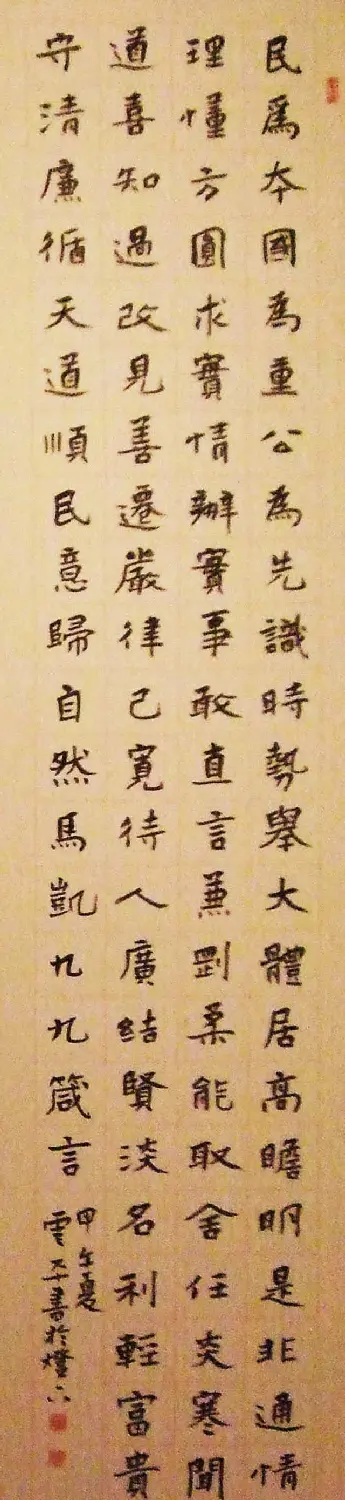 民爲本國為重公為先識時勢舉大體居高瞻明是非通情
理懂方圓求實情辦實事敢直言兼剛柔能取舍任炎寒聞
道喜知過改見善遷嚴律己寬待人廣結賢淡名利輕富貴
守清廉循天道順民意歸自然馬凱九九箴言
甲午夏
雲書於燈下